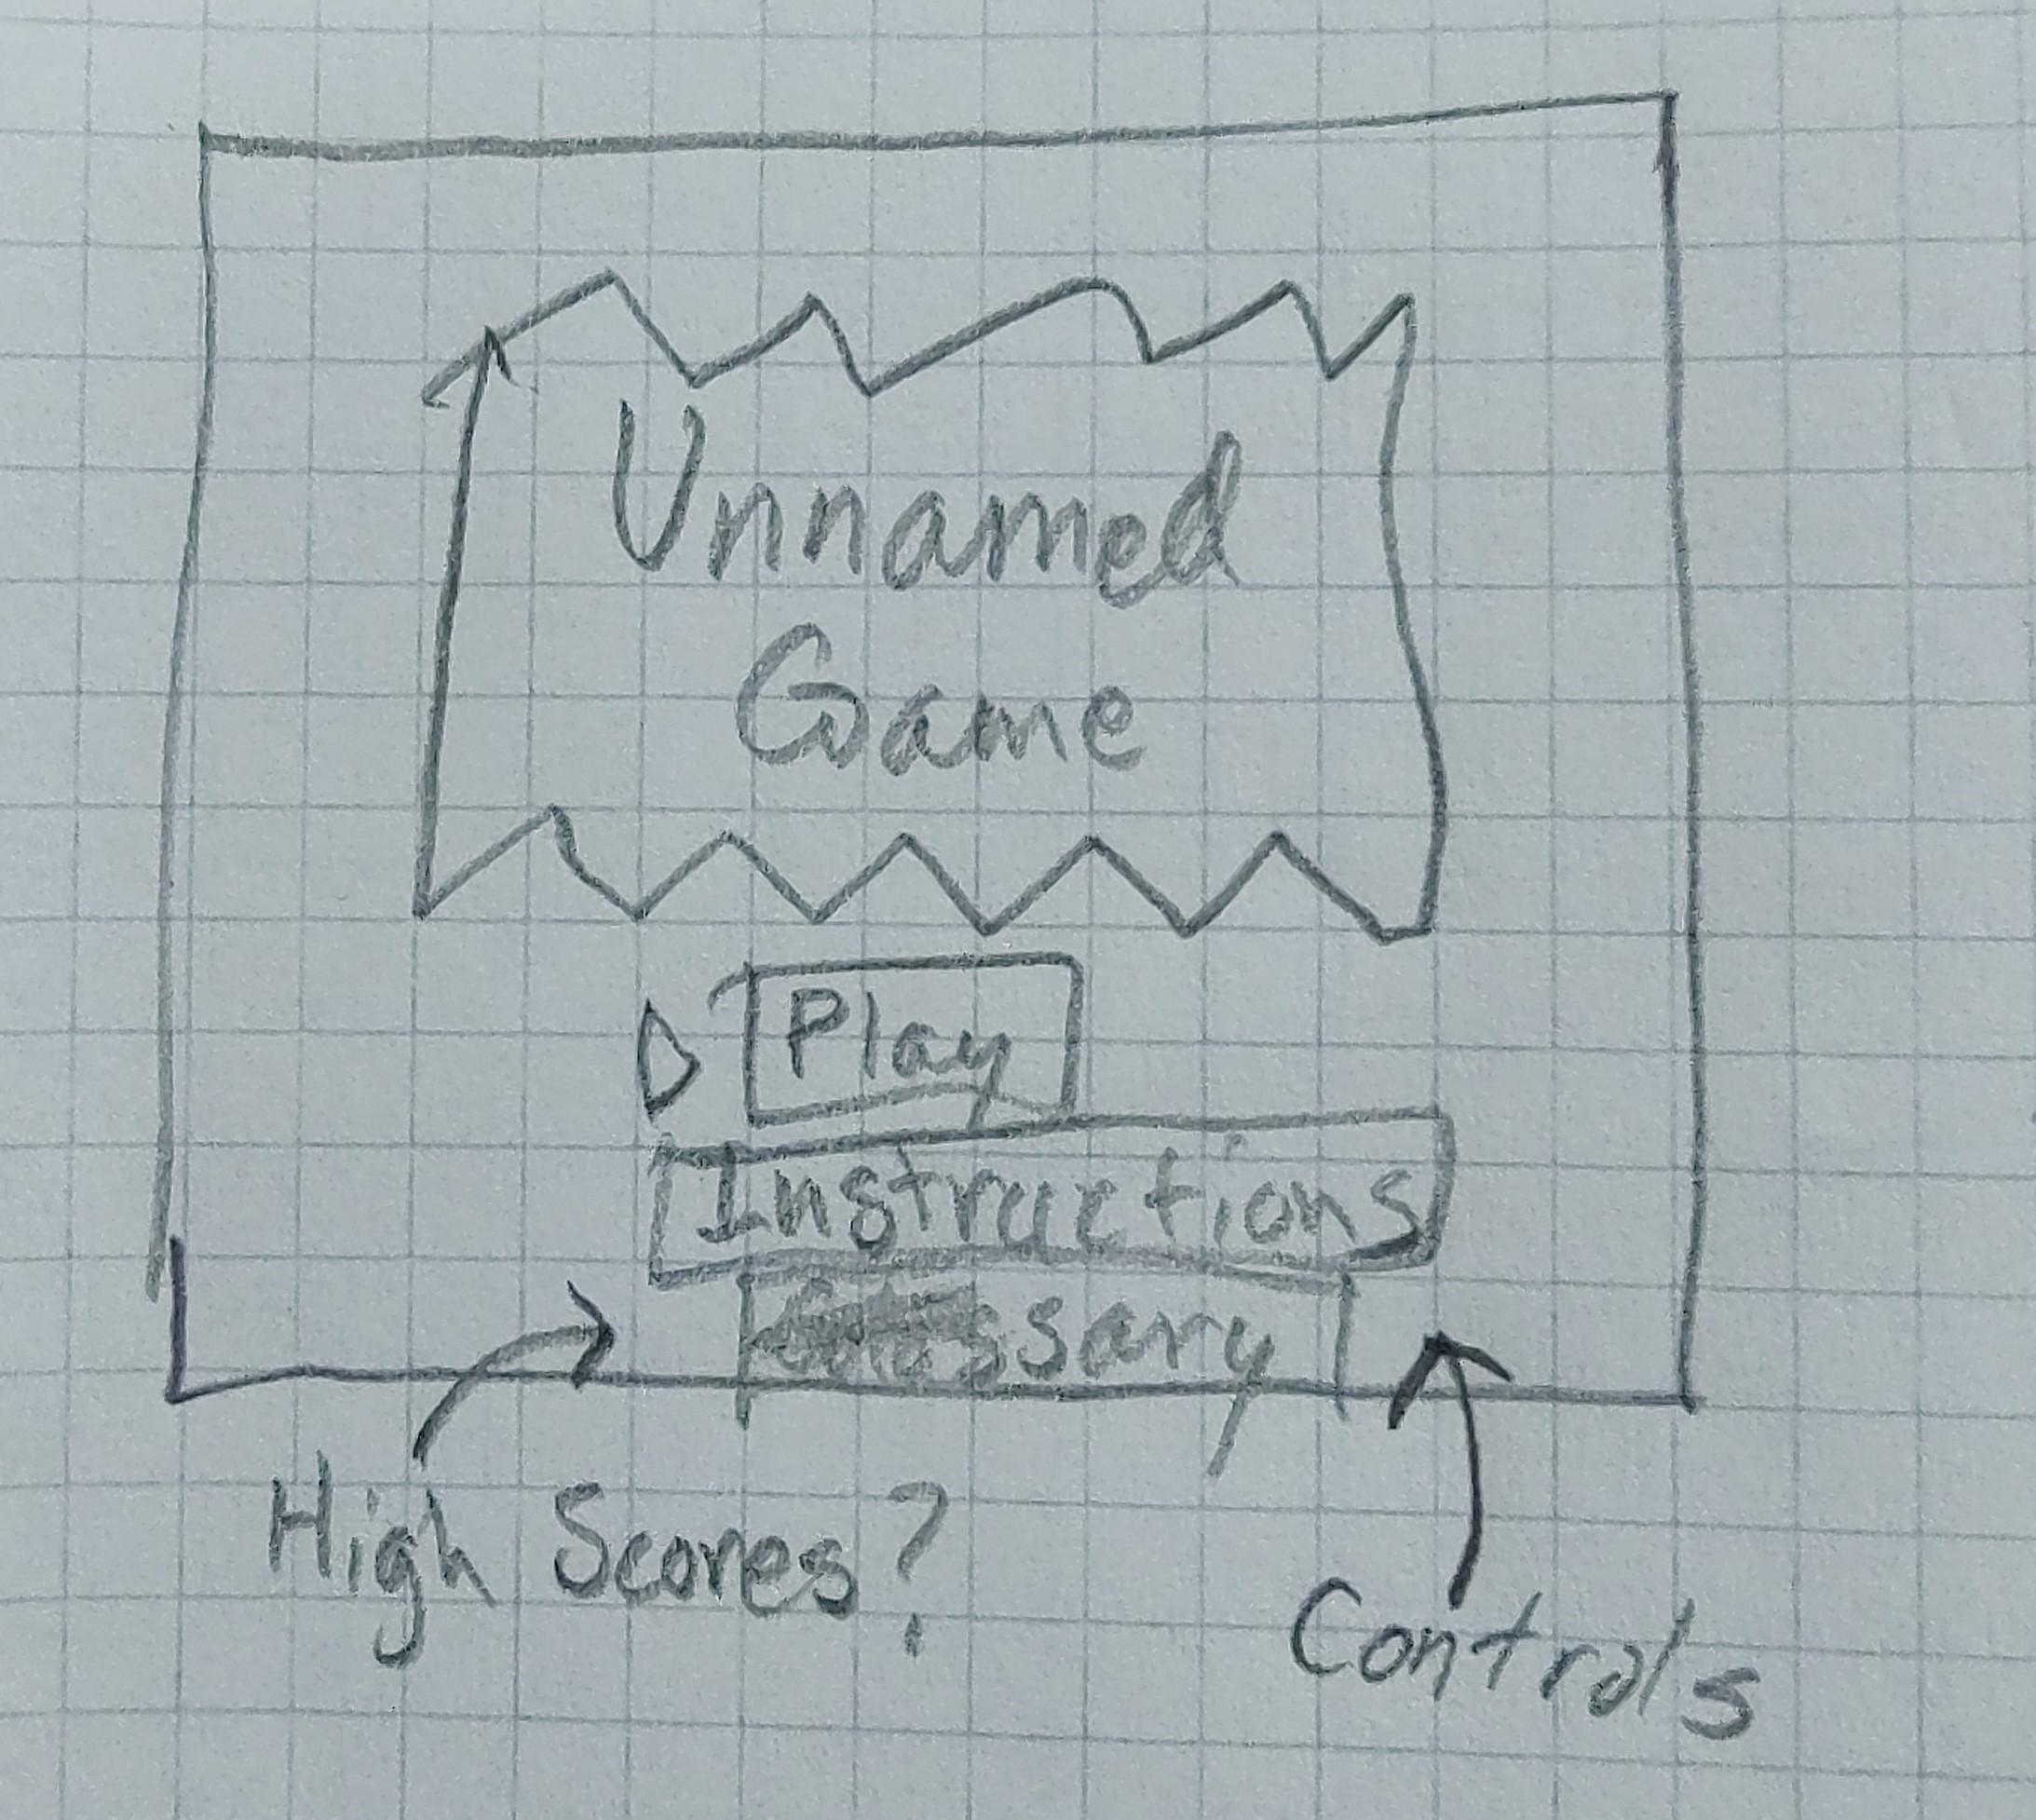 Unnamed
Game
Play
Instructions
Glossary
High Scores?
Controls